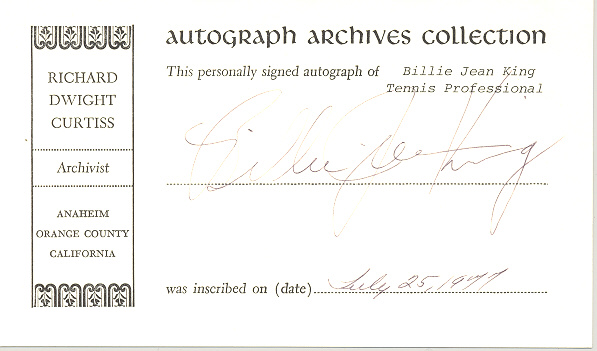 RICHARD
DWIGHT
CURTISS
Archivist
ANAHEIM
ORANGE COUNTY
CALIFORNIA
AUTOGRAPH ARCHIVES COLLECTION
This personally signed autograph of Billie Jean King
Tennis Professional
Billie Jean King
was inscribed on (date) July 25, 1977